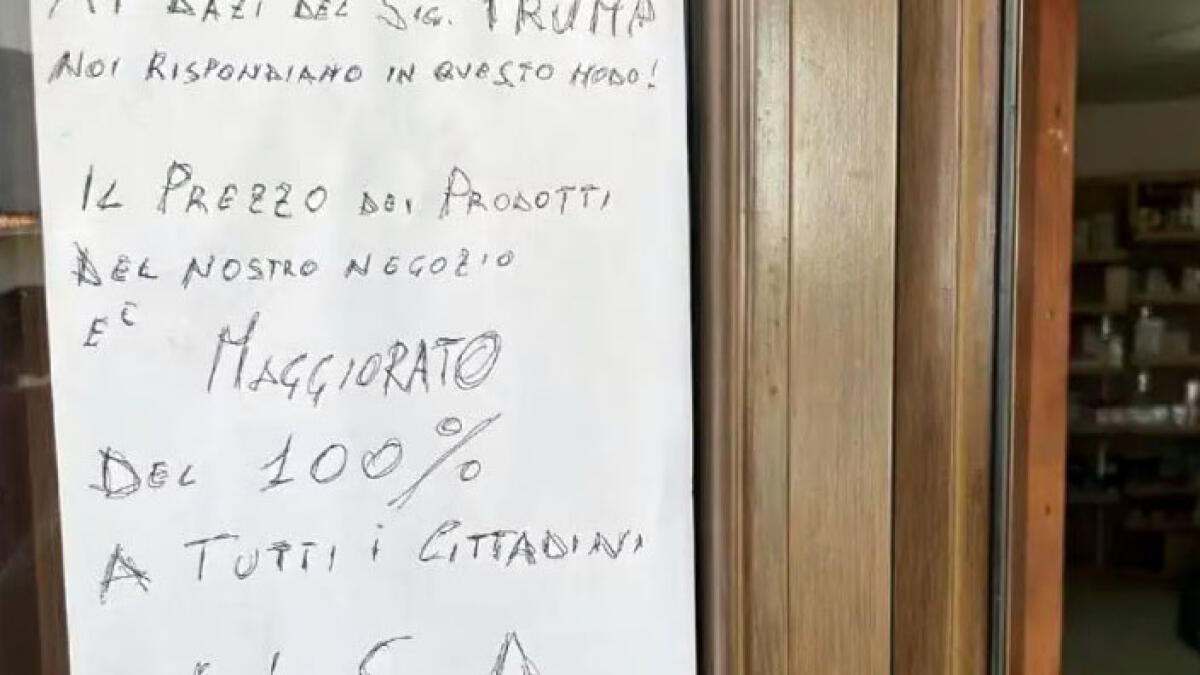 AI DAZI DEL SIG. TRUMP
NOI RISPONDIAMO IN QUESTO MODO!
IL PREZZO DEI PRODOTTI
DEL NOSTRO NEGOZIO
E'
MAGGIORATO
DEL 100%
A TUTTI i CITTADINI